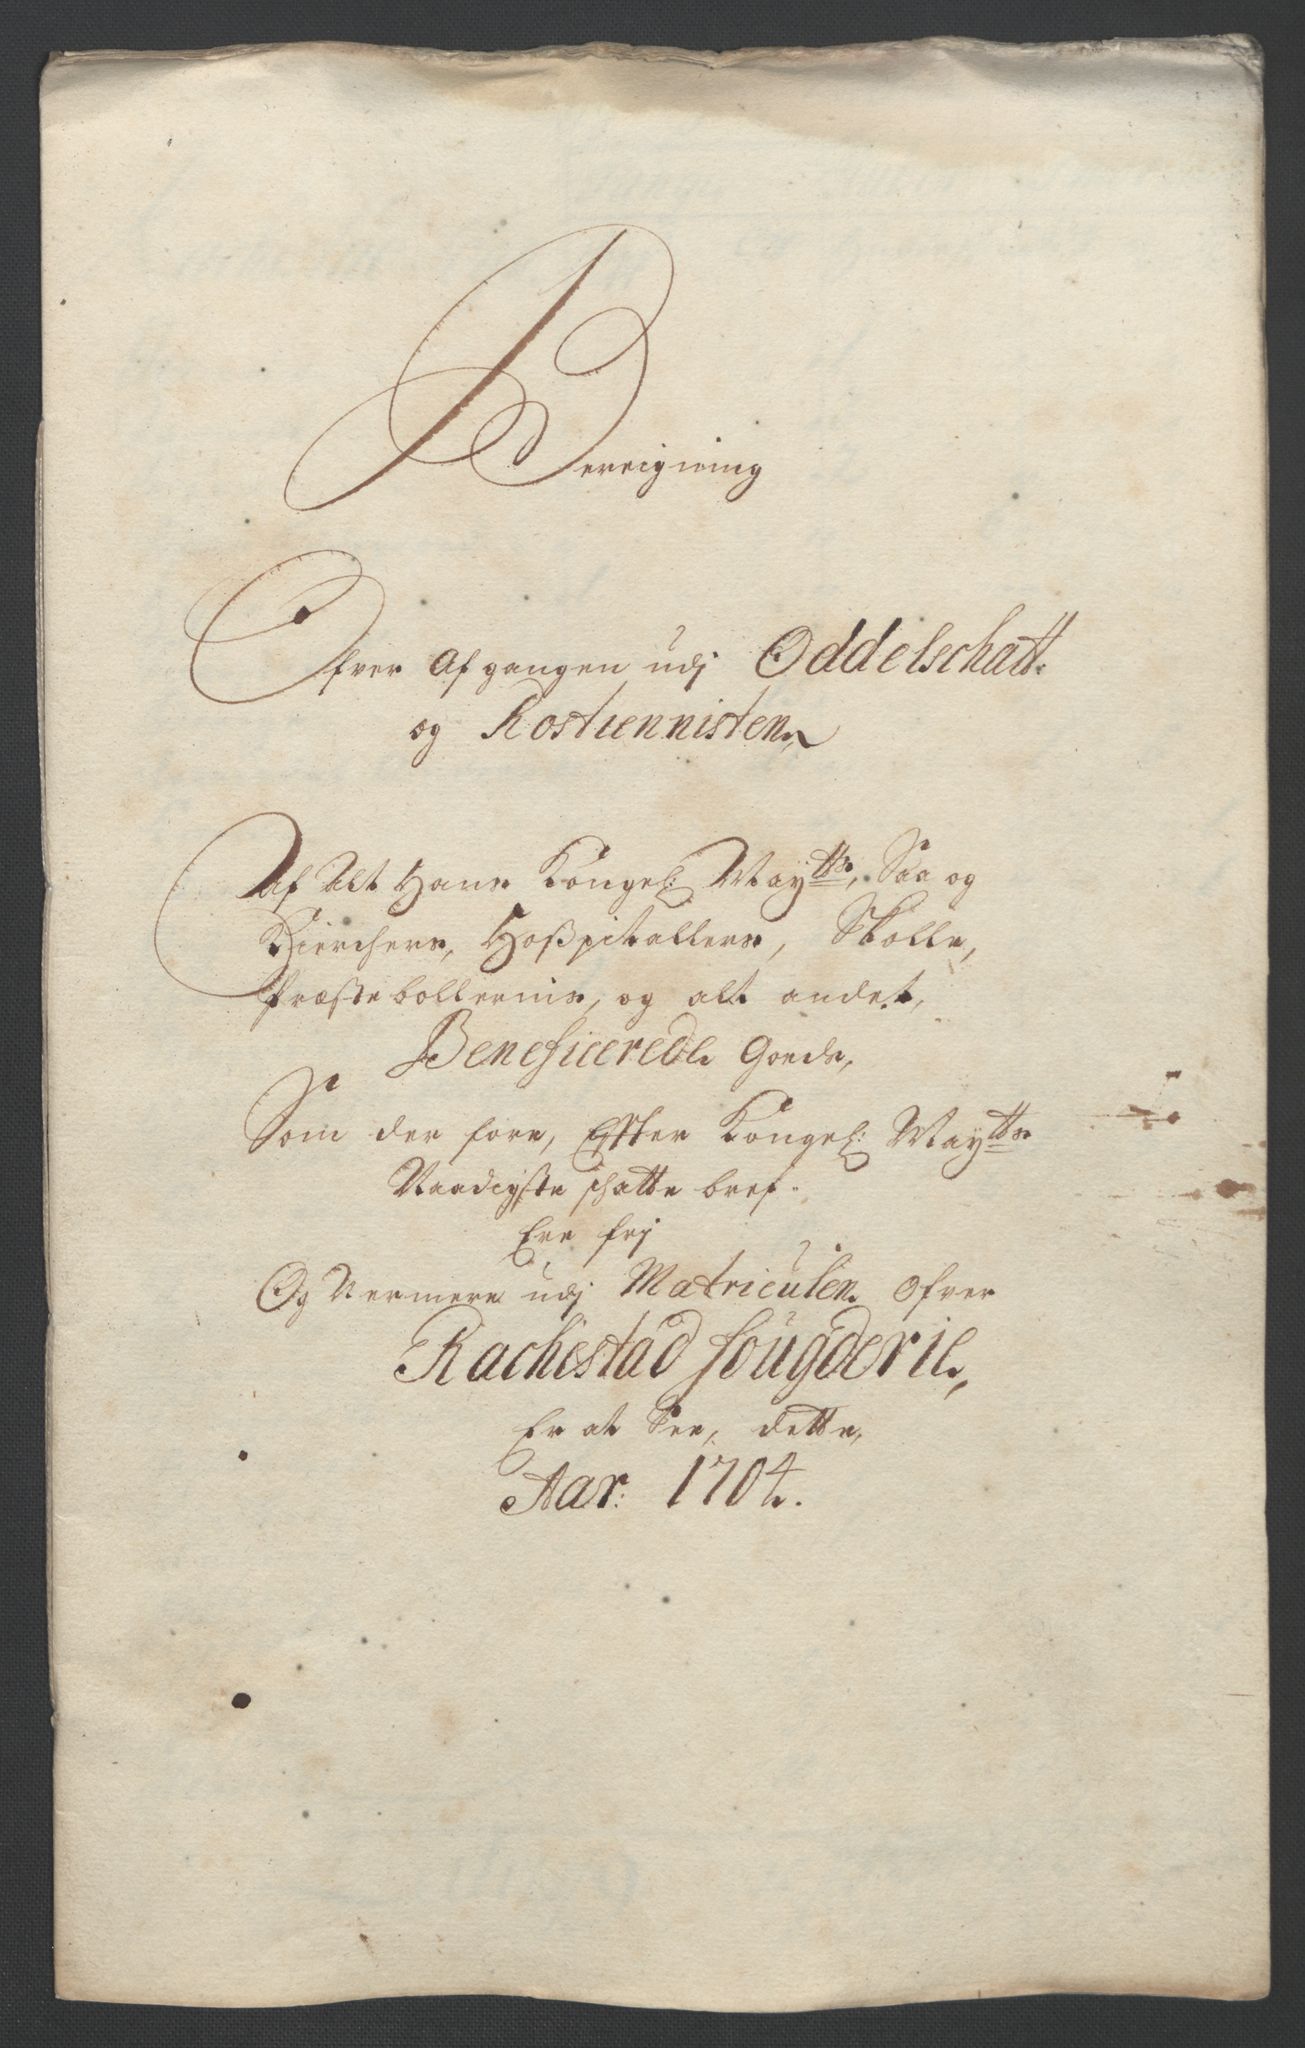 Berreigning
Ofver Afgangen udj Oddelschatt
og Rostiennisten,
Af Alt Hans Kongel: Maytts, Saa og
Kierchers, Hoßpitallers, Skolle,
Præstebollernis, og alt andet,
Beneficerede Goeds,
Som der fore, Effter Kongel: Maytts
Naadigste schatte bref.
Ere frj
Og Nermere udj Matriculen Ofver
Rachestad fougderie,
Er at See, dette,
Aar: 1704.